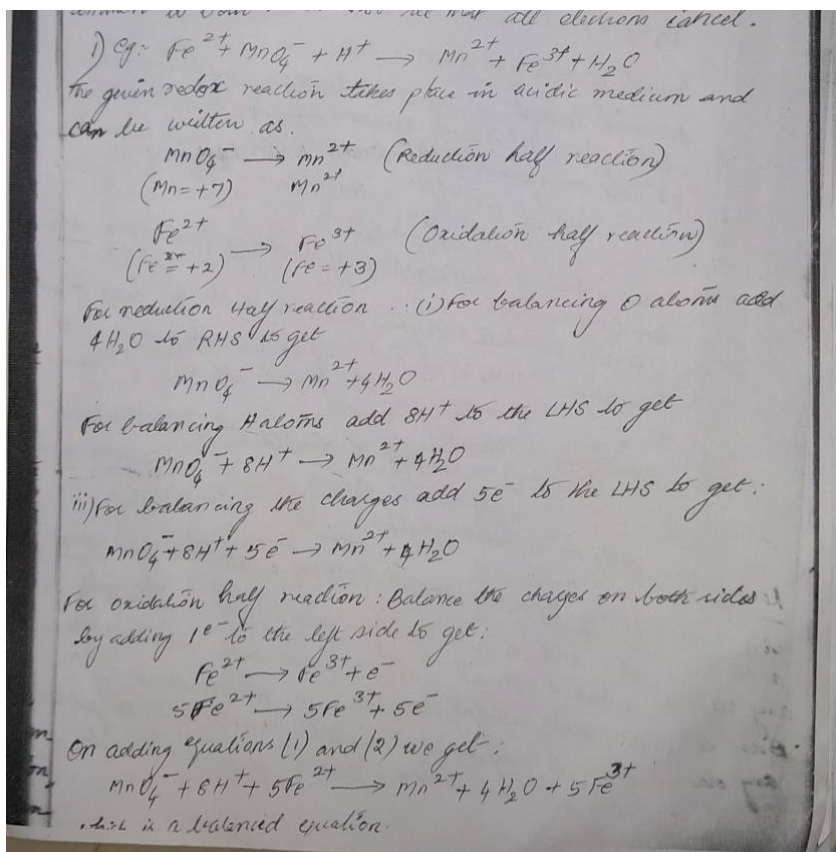 all electrons cancel.
1) eg:- Fe²⁺ + MnO₄⁻ + H⁺ → Mn²⁺ + Fe³⁺ + H₂O
The given redox reaction takes place in acidic medium and
can be written as.
MnO₄⁻ → mn²⁺ (Reduction half reaction)
(Mn = +7) Mn²⁺
Fe²⁺ → Fe³⁺ (Oxidation half reaction)
(Fe = +2) (Fe = +3)
For reduction Half reaction : (i) For balancing O atoms add
4H₂O to RHS to get
MnO₄⁻ → Mn²⁺ + 4H₂O
For balancing H atoms add 8H⁺ to the LHS to get
MnO₄⁻ + 8H⁺ → Mn²⁺ + 4H₂O
iii) For balancing the charges add 5e⁻ to the LHS to get:
MnO₄⁻ + 8H⁺ + 5e⁻ → Mn²⁺ + 4H₂O
For oxidation half reaction : Balance the charges on both sides
by adding 1e⁻ to the left side to get:
Fe²⁺ → Fe³⁺ + e⁻
5Fe²⁺ → 5Fe³⁺ + 5e⁻
On adding equations (1) and (2) we get:
MnO₄⁻ + 8H⁺ + 5Fe²⁺ → Mn²⁺ + 4H₂O + 5Fe³⁺
which is a balanced equation.